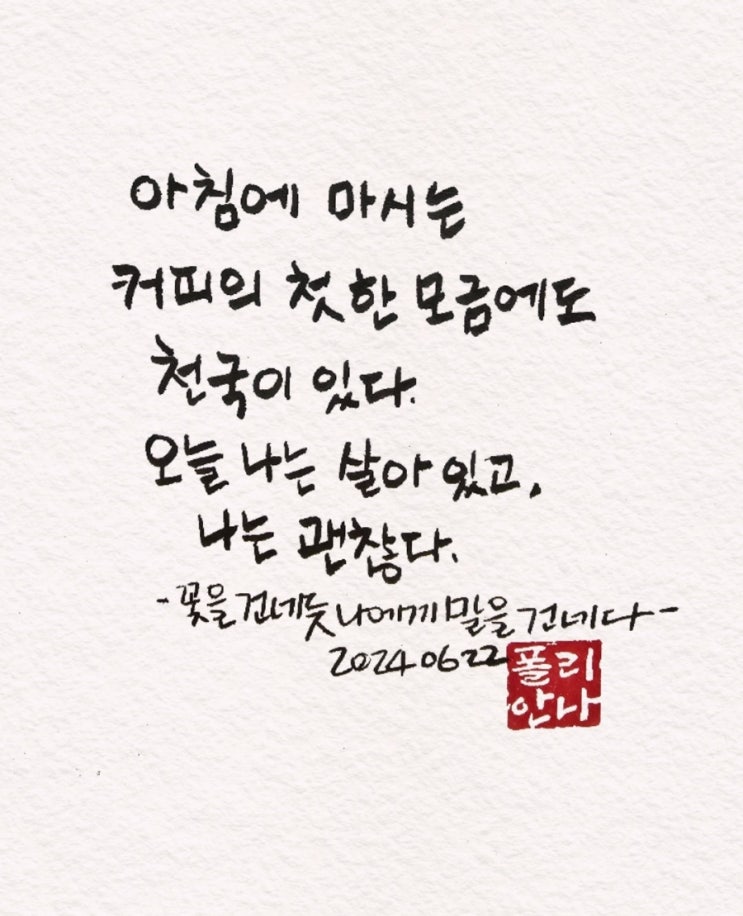 아침에 마시는
커피의 첫 한 모금에도
천국이 있다.
오늘 나는 살아 있고,
나는 괜찮다.
-꽃을 건네듯 나에게 말을 건네다-
2024 06 22
폴리
안나